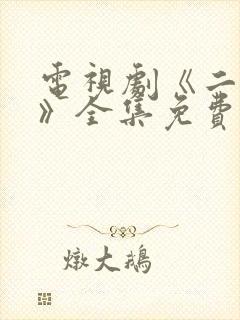 電視劇《二
》全集免費
燉大鵝